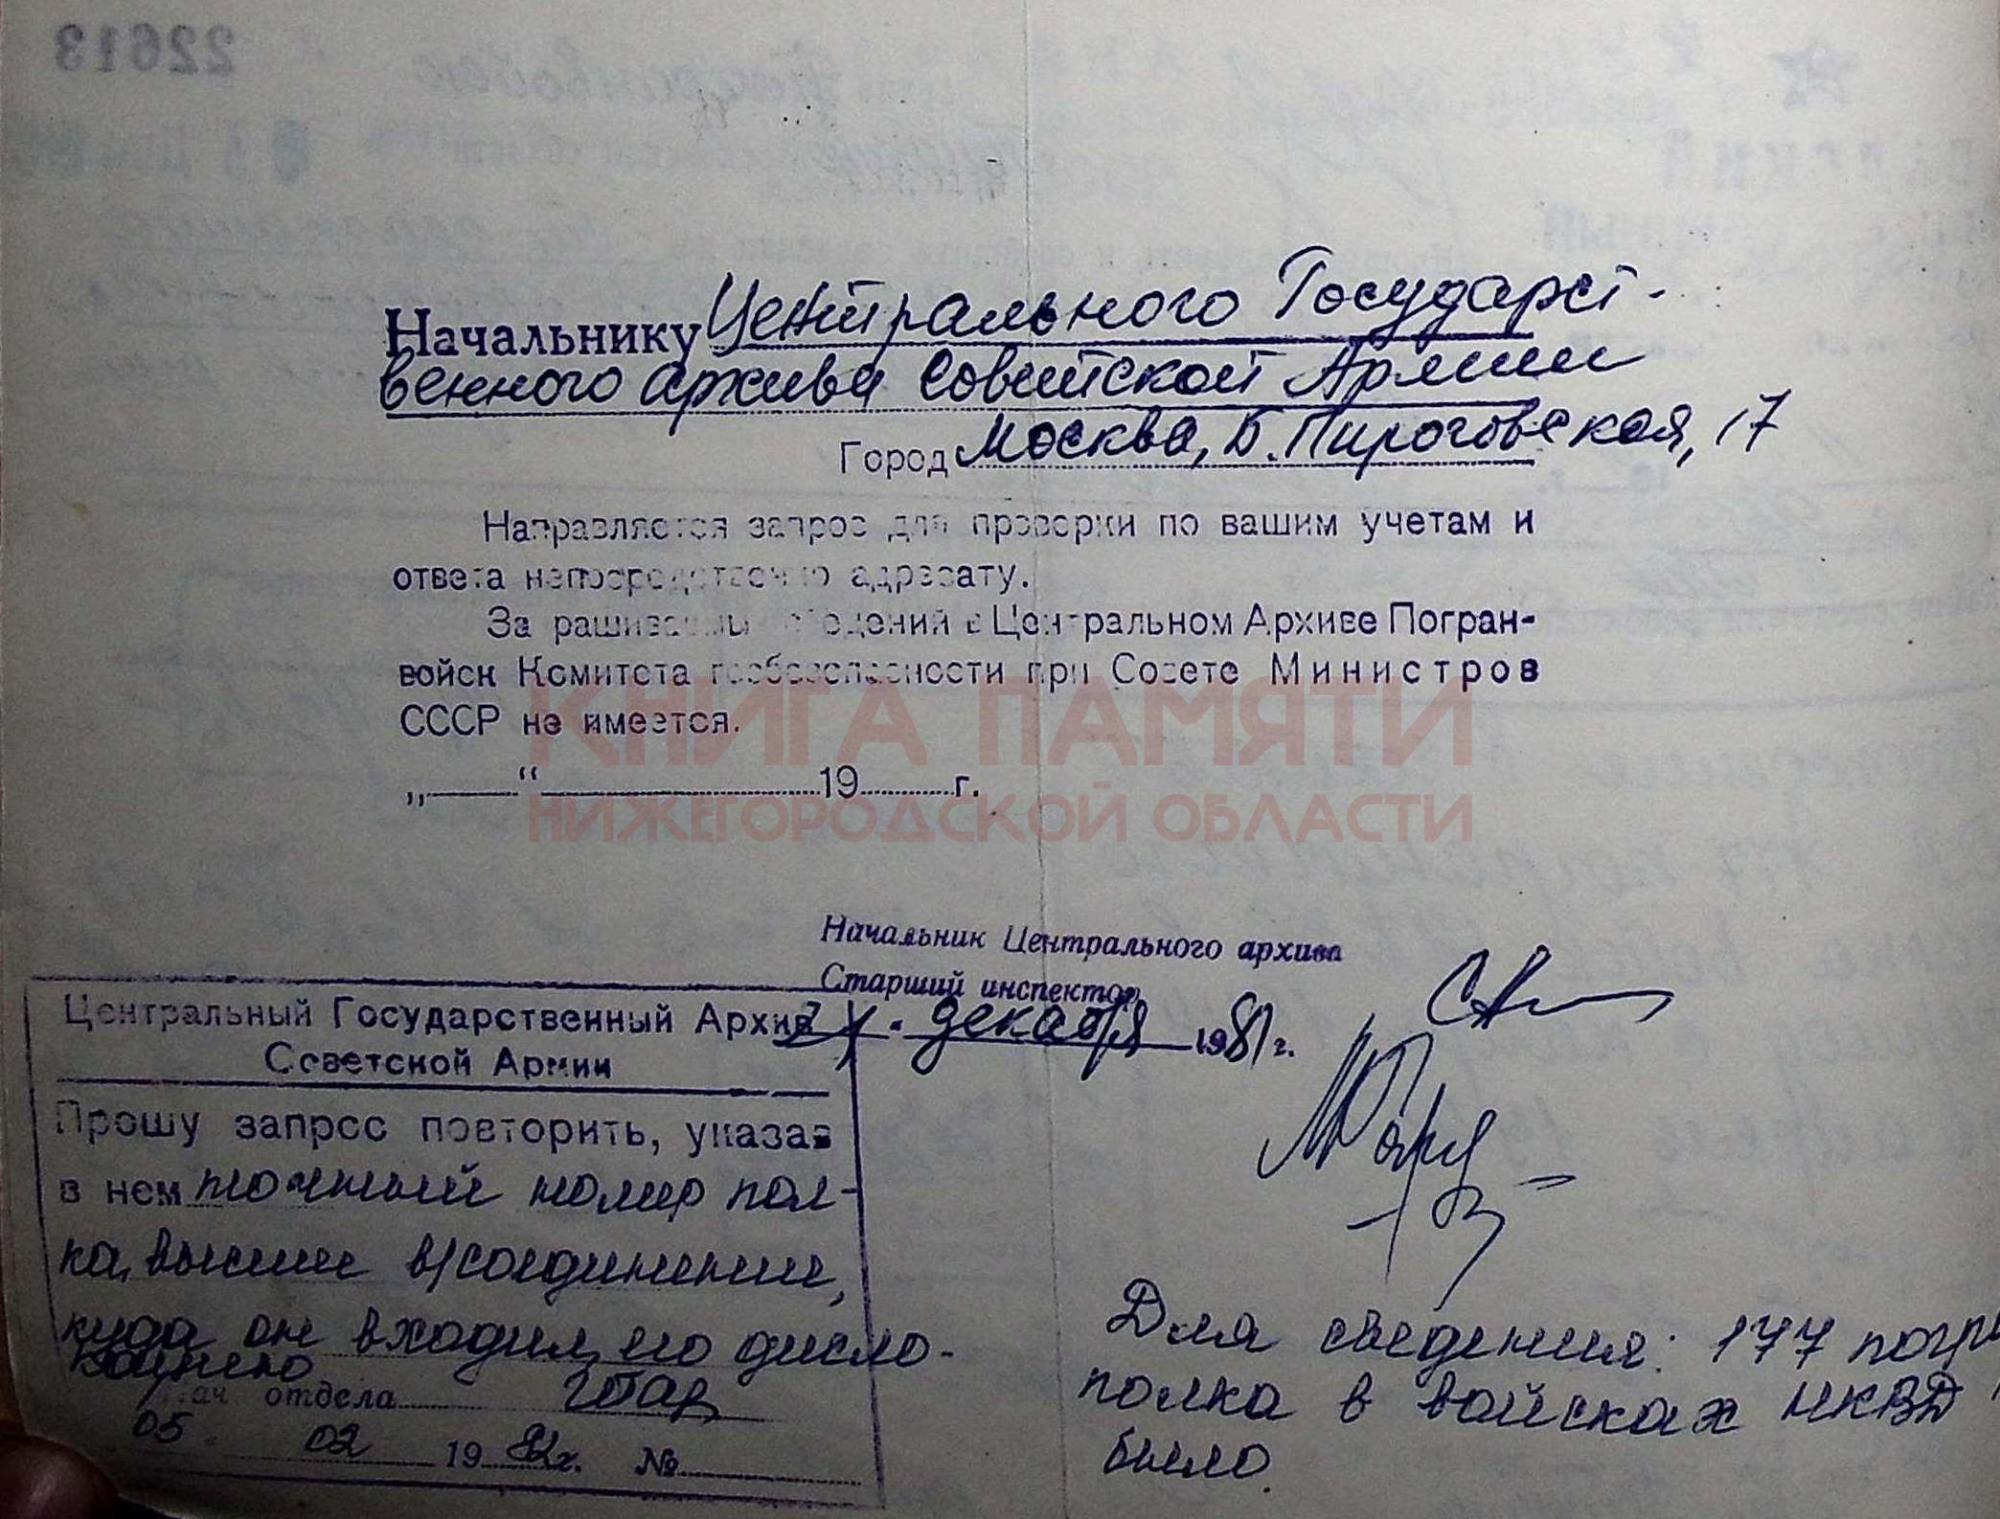 22613
Начальнику Центрального Государст-
венного архива Советской Армии
Город Москва, Б. Пироговская, 17
Направляется запрос для проверки по вашим учетам и
ответа непосредственно адресату.
Запрашиваемых сведений в Центральном Архиве Погран-
войск Комитета госбезопасности при Совете Министров
СССР не имеется.
„ “ 19 г.
КНИГА ПАМЯТИ
НИЖЕГОРОДСКОЙ ОБЛАСТИ
Начальник Центрального архива
Старший инспектор
декабря 1981 г.
Центральный Государственный Архив
Советской Армии
Прошу запрос повторить, указав
в нем точный номер пол-
ка, высшее в/соединение,
куда он входил, его дисло-
кацию
Нач отдела
05. 02 1982г. №
Для сведения: 177 погр
полка в войсках НКВД
было.